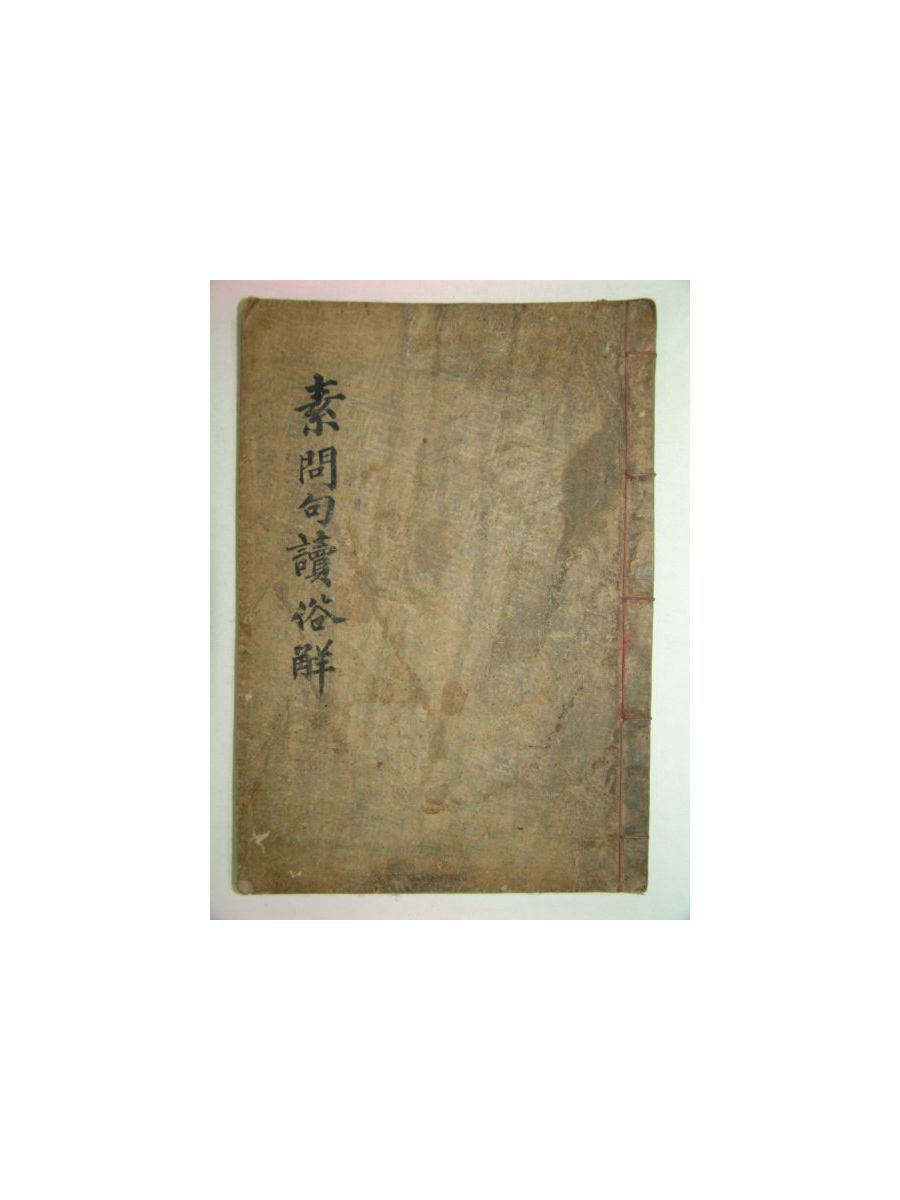 素問句讀俗解